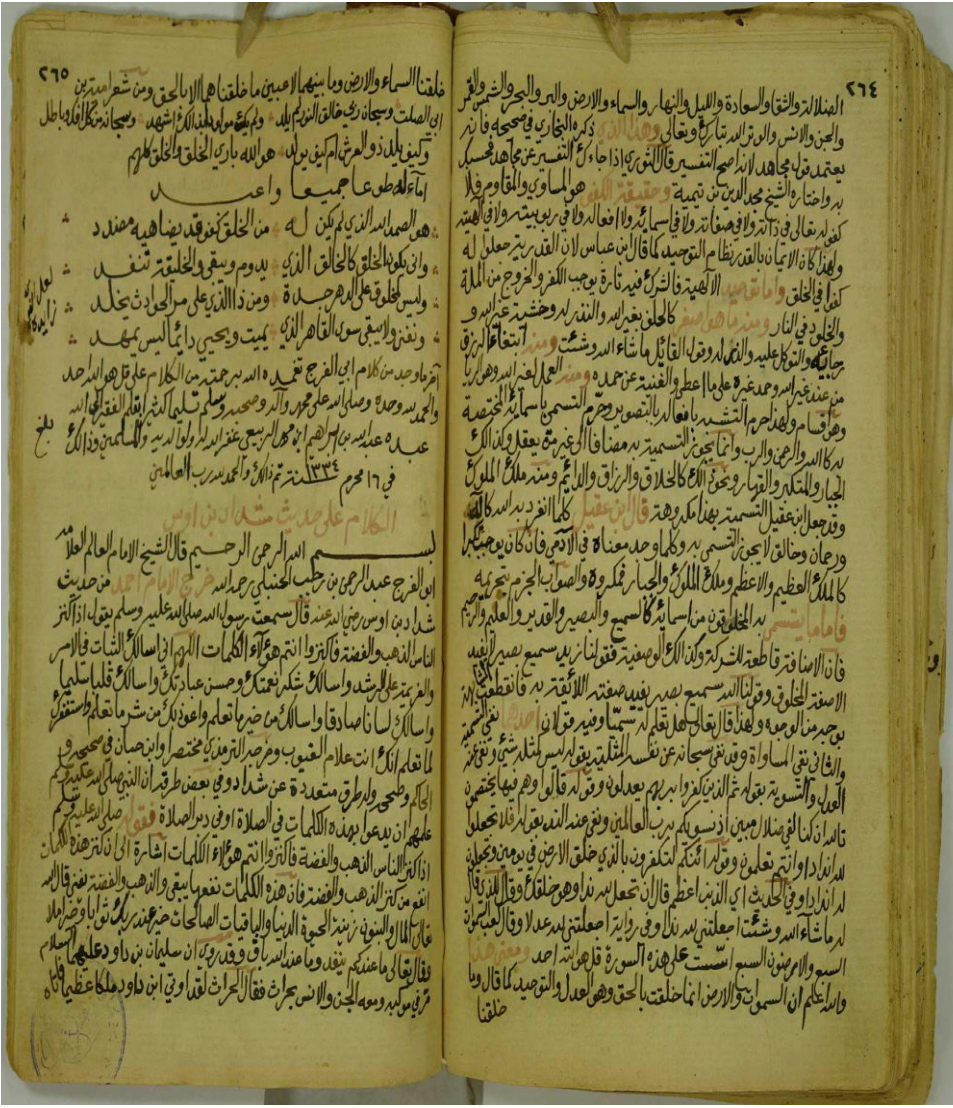 ٢٦٤
الضلالة والشقا والسعادة والليل والنهار والسماء والارض والبر والبحر والشمس والقمر
والجن والانس والوتر الله تبارك وتعالى وهذا الذي ذكره البخاري في صحيحه فانه
يعتمد قول مجاهد لانه اصح التفسير قال الثوري اذا جاءك التفسير عن مجاهد فحسبك
به واختاره الشيخ مجد الدين بن تيمية وحقيقة الكفو هو المساوي والمقاوم فلا
كفو له تعالى في ذاته ولا في صفاته ولا في اسمائه ولا افعاله ولا في ربوبيته ولا في الهيته
ولهذا كان الايمان بالقدر نظام التوحيد كما قال ابن عباس لان القدرية جعلوا له
كفوا في الخلق واما توحيد الالهية فالشرك فيه تارة يوجب الكفر والخروج من الملة
والخلود في النار ومنه ما هو اصغر كالحلف بغير الله والنذر له وخشية غير الله و
رجائه والتوكل عليه والذل له وقول القائل ما شاء الله وشئت ومنه ابتغاء الرزق
من عند غير الله وحمد غيره على ما اعطى والغنية عن حمده ومنه العمل لغير الله وهو الريا
وهو اقسام ولهذا حرم التشبه بافعاله بالتصوير وحرم التسمي باسمائه المختصة
به كالله والرحمن والرب وانما يجوز التسمية به مضافا الى غير من يعقل وكذلك
الجبار والمتكبر والقهار ونحو ذلك كالخلاق والرزاق والدائم ومنه ملك الملوك
وقد جعل ابن عقيل التسمية بهذا مكروهة قال ابن عقيل كلما انفرد به الله كالله
ورحمان وخالق لا يجوز التسمي به وكلما وجد معناه في الآدمي فان كان يوجب تكبرا
كالملك العظيم والاعظم وملك الملوك والجبار فمكروه والصواب الجزم بتحريمه
فاما ما يتسمى به المخلوقون من اسمائه كالسميع والبصير والقدير والعليم والرحيم
فان الاضافة قاطعة للشركة وكذلك الوصفية فقولنا زيد سميع بصير لا يفيد
الا صفة المخلوق وقولنا الله سميع بصير يفيد صفته اللائقة به فانقطعت المشابهة
بوجه من الوجوه ولهذا قال تعالى هل تعلم له سميا وفيه قولان احدهما نفي التسمية
والثاني نفي المساواة وقد نفى سبحانه عن نفسه المثلية بقوله ليس كمثله شيء ونفى عنه
العدل والتسوية بقوله ثم الذين كفروا بربهم يعدلون وقوله قالوا وهم فيها يختصمون
تالله ان كنا لفي ضلال مبين اذ نسويكم برب العالمين ونفى عنه الند بقوله فلا تجعلوا
لله اندادا وانتم تعلمون وقوله ائنكم لتكفرون بالذي خلق الارض في يومين وتجعلون
له اندادا وفي الحديث اي الذنب اعظم قال ان تجعل لله ندا وهو خلقك وقال للذي قال
له ما شاء الله وشئت اجعلتني لله ندا وفي رواية اجعلتني لله عدلا وقال كعب السموات
السبع والارضون السبع اسست على هذه السورة قل هو الله احد ومعنى هذا
والله اعلم ان السموات والارض انما خلقت بالحق وهو العدل والتوحيد كما قال وما
خلقنا
٢٦٥
خلقنا السماء والارض وما بينهما لاعبين ما خلقناهما الا بالحق ومن شعر امية بن
ابي الصلت وسبحان ربي خالق النور لم يلد ولم يك مولودا بذلك اشهد وسبحانه من كل افك وباطل
وكيف يلد ذو العرش ام كيف يولد هو الله باري الخلق والخلق كلهم
اماء له طوعا جميعا واعبد
هو الصمد الله الذي لم يكن له من الخلق كفو قد يضاهيه مضدد
وانى يكون الخلق كالخالق الذي يدوم ويبقى والخليقة تنفد
وليس لمخلوق على الدهر جدة ومن ذا الذي على مر الحوادث يخلد
ونفنى ولا يبقى سوى القاهر الذي يميت ويحيي دائما ليس يمهد
آخر ما وجد من كلام ابي الفرج تغمده الله برحمته من الكلام على قل هو الله احد
والحمد لله وحده وصلى الله على محمد وآله وصحبه وسلم تسليما كثيرا بقلم الفقير الى الله
عبده عبد الله بن ابراهيم ابن محمد الربيعي غفر الله له ولوالديه وللمسلمين وذلك
في ١٦ محرم ١٣٣٤ سنة تم ذلك والحمد لله رب العالمين
بلغ
الكلام على حديث شداد بن اوس
بسم الله الرحمن الرحيم قال الشيخ الامام العالم العلامه
ابو الفرج عبد الرحمن بن رجب الحنبلي رحمه الله خرج الامام احمد من حديث
شداد بن اوس رضي الله عنه قال سمعت رسول الله صلى الله عليه وسلم يقول اذا كنز
الناس الذهب والفضة فاكنزوا انتم هؤلاء الكلمات اللهم اني اسالك الثبات في الامر
والعزيمة على الرشد واسالك شكر نعمتك وحسن عبادتك واسالك قلبا سليما
واسالك لسانا صادقا واسالك من خير ما تعلم واعوذ بك من شر ما تعلم واستغفرك
لما تعلم انك انت علام الغيوب وخرجه الترمذي مختصرا وابن حبان في صحيحه و
الحاكم وصححه وله طرق متعددة عن شداد وفي بعض طرقه ان النبي صلى الله عليه وسلم
علمهم ان يدعوا بهذه الكلمات في الصلاة او في دبر الصلاة فقوله صلى الله عليه وسلم
اذا كنز الناس الذهب والفضة فاكنزوا انتم هؤلاء الكلمات اشارة الى ان كنز هذه الكلمات
انفع من كنز الذهب والفضة فان هذه الكلمات نفعها يبقى والذهب والفضة يفنى قال الله
تعالى المال والبنون زينة الحيوة الدنيا والباقيات الصالحات خير عند ربك ثوابا وخير املا
وقال تعالى ما عندكم ينفد وما عند الله باق وقد روي ان سليمان بن داود عليهما السلام
مر في موكبه ومعه الجن والانس بحراث فقال الحراث لقد اوتي ابن داود ملكا عظيما فاتاه